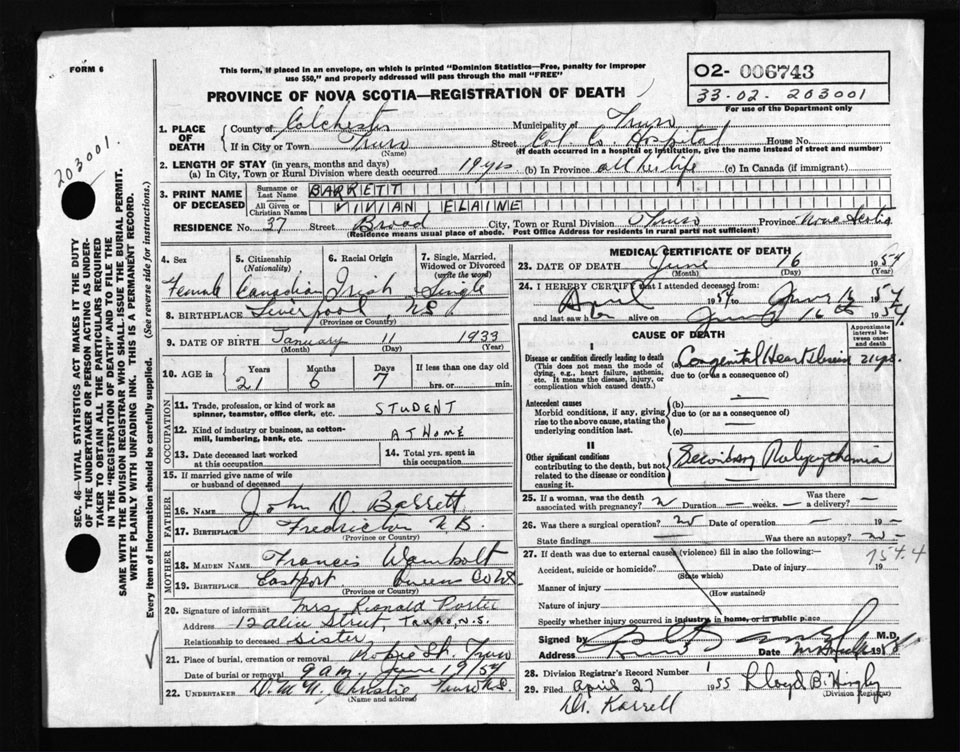 FORM 6
This form, if placed in an envelope, on which is printed "Dominion Statistics—Free, penalty for improper
use $50," and properly addressed will pass through the mail "FREE"
PROVINCE OF NOVA SCOTIA—REGISTRATION OF DEATH
02- 006743
33.02. 203001
For use of the Department only
203001.
SEC. 46—VITAL STATISTICS ACT MAKES IT THE DUTY
OF THE UNDERTAKER OR PERSON ACTING AS UNDER-
TAKER TO OBTAIN ALL THE PARTICULARS REQUIRED
IN THE "REGISTRATION OF DEATH" AND TO FILE THE
SAME WITH THE DIVISION REGISTRAR WHO SHALL ISSUE THE BURIAL PERMIT.
WRITE PLAINLY WITH UNFADING INK. THIS IS A PERMANENT RECORD.
Every item of information should be carefully supplied. (See reverse side for instructions.)
1. PLACE OF DEATH
County of Colchester Municipality of Truro
If in City or Town Truro Street Col. Co. Hospital House No.
(Name) (If death occurred in a hospital or institution, give the name instead of street and number)
2. LENGTH OF STAY (in years, months and days)
(a) In City, Town or Rural Division where death occurred 19 yrs (b) In Province all her life (c) In Canada (if immigrant)
3. PRINT NAME OF DECEASED
Surname or Last Name BARRETT
All Given or Christian Names VIVIAN ELAINE
RESIDENCE No. 37 Street Broad City, Town or Rural Division Truro Province Nova Scotia
(Residence means usual place of abode. Post Office Address for residents in rural parts not sufficient)
4. Sex 5. Citizenship (Nationality) 6. Racial Origin 7. Single, Married, Widowed or Divorced (write the word)
Female Canadian Irish Single
8. BIRTHPLACE Liverpool, N.S.
(Province or Country)
9. DATE OF BIRTH January 11 1933
(Month) (Day) (Year)
10. AGE in Years Months Days If less than one day old
21 6 7 hrs. or min.
OCCUPATION
11. Trade, profession, or kind of work as
spinner, teamster, office clerk, etc. STUDENT
12. Kind of industry or business, as cotton-
mill, lumbering, bank, etc. AT HOME
13. Date deceased last worked
at this occupation
14. Total yrs. spent in
this occupation
15. If married give name of wife
or husband of deceased
FATHER
16. Name John D. Barrett
17. Birthplace Fredricton N.B.
(Province or Country)
MOTHER
18. MAIDEN NAME Francis Wambolt
19. BIRTHPLACE Eastport Queens Co N.S.
(Province or Country)
20. Signature of informant Mrs Porter
Address 12 Alice Street, Truro, N.S.
Relationship to deceased Sister
21. Place of burial, cremation or removal Robie St. Truro
Date of burial or removal 9 am, June 19/54
22. UNDERTAKER Christie Truro N.S.
(Name and address)
MEDICAL CERTIFICATE OF DEATH
23. DATE OF DEATH June 16 1954
(Month) (Day) (Year)
24. I HEREBY CERTIFY that I attended deceased from:
April 1954 to June 1954
and last saw her alive on June 16 1954.
CAUSE OF DEATH
Approximate interval between onset and death
I
Disease or condition directly leading to death
(This does not mean the mode of
dying, e.g., heart failure, asthenia,
etc. It means the disease, injury, or
complication which caused death.)
Congenital Heart Disease 21 yrs.
due to (or as a consequence of)
Antecedent causes
Morbid conditions, if any, giving
rise to the above cause, stating the
underlying condition last.
(b) —
due to (or as a consequence of)
(c) —
II
Other significant conditions
contributing to the death, but not
related to the disease or condition
causing it.
Secondary Polycythemia
25. If a woman, was the death
associated with pregnancy? N Duration weeks. — Was there a delivery? —
26. Was there a surgical operation? no Date of operation — 19 —
State findings — Was there an autopsy? no
27. If death was due to external causes (violence) fill in also the following:—
754.4
Accident, suicide or homicide? Date of injury 19
(State which)
Manner of injury
(How sustained)
Nature of injury
Specify whether injury occurred in industry, in home, or in public place
Signed by M.D.
Address Date
28. Division Registrar's Record Number
29. Filed April 27 1955 Lloyd B.
(Division Registrar)
Dr. Karrell